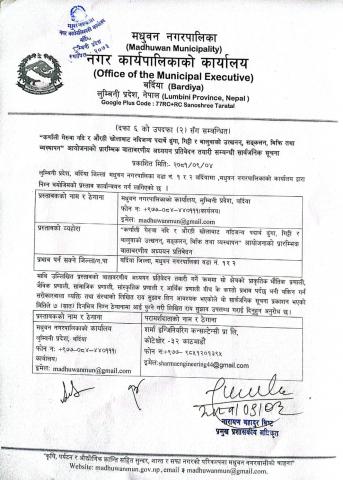 मधुवन नगरपालिका
(Madhuwan Municipality)
नगर कार्यपालिकाको कार्यालय
(Office of the Municipal Executive)
बर्दिया (Bardiya)
लुम्बिनी प्रदेश, नेपाल (Lumbini Province, Nepal)
Google Plus Code : 77RC+RC Sanoshree Taratal
(दफा ६ को उपदफा (२) सँग सम्बन्धित)
"कर्णाली गेरुवा नदि र औरही खोलाबाट नदिजन्य पदार्थ ढुंगा, गिट्टी र बालुवाको उत्खनन्, सङ्कलन, बिक्रि तथा
व्यवस्थापन" आयोजनाको प्रारम्भिक वातावरणीय अध्ययन प्रतिवेदन तयारी सम्बन्धी सार्वजनिक सूचना
प्रकाशित मितिः- २०८१/०९/०४
लुम्बिनी प्रदेश, बर्दिया जिल्ला मधुवन नगरपालिका वडा नं. १ र २ बर्दियामा, मधुवन नगरपालिकाको कार्यालय द्वारा
निम्न बमोजिमको प्रस्ताव कार्यान्वयन गर्न लागिएको छ ।
प्रस्तावकको नाम र ठेगाना
मधुवन नगरपालिकाको कार्यालय, लुम्बिनी प्रदेश, बर्दिया
फोन नं: +९७७-०८४-४४०१११(कार्यालय)
इमेल: madhuwanmun@gmail.com
प्रस्तावको व्यहोरा
"कर्णाली गेरुवा नदि र औरही खोलाबाट नदिजन्य पदार्थ ढुंगा, गिट्टी र
बालुवाको उत्खनन्, सङ्कलन, बिक्रि तथा व्यवस्थापन" आयोजनाको प्रारम्भिक
वातावरणीय अध्ययन प्रतिवेदन
प्रभाव पर्न सक्ने जिल्ला/न.पा
बर्दिया जिल्ला, मधुवन नगरपालिका वडा नं. १र २
माथि उल्लिखित प्रस्तावको वातावरणीय अध्ययन प्रतिवेदन तयारी गर्ने क्रममा सो क्षेत्रको प्राकृतिक भौतिक प्रणाली,
जैविक प्रणाली, सामाजिक प्रणाली, सांस्कृतिक प्रणाली र आर्थिक प्रणाली बीच के कस्तो प्रभाव पर्दछ भनी यकिन गर्न
सरोकारवाला व्यक्ति तथा संस्थाको लिखित राय सुझाव लिन आवश्यक भएकोले यो सार्वजनिक सूचना प्रकाशन भएको
मितिले ७ (सात) दिनभित्र निम्न ठेगानामा आई पुग्ने गरी लिखित राय सुझाव उपलब्ध गराई दिनुहुन अनुरोध छ।
प्रस्तावकको नाम र ठेगाना
परामर्शदाताको नाम र ठेगाना
मधुवन नगरपालिकाको कार्यालय
लुम्बिनी प्रदेश, बर्दिया
फोन नं: +९७७-०८४-४४०१११(
कार्यालय)
इमेल: madhuwanmun@gmail.com
शर्मा इन्जिनियरिंग कन्सल्टेन्सी प्रा लि,
कोटेश्वोर -३२ काठमाडौं
इमेल:sharmaengineering44@gmail.com
नारायण बहादुर बिष्ट
प्रमुख प्रशासकीय अधिकृत
"कृषि, पर्यटन र औद्योगिक क्रान्ति सहित सुन्दर, शान्त र सफा नगरको परिकल्पना मधुवन नगरवासीको चाहना"
Website: madhuwanmun.gov.np, email: madhuwanmun@gmail.com